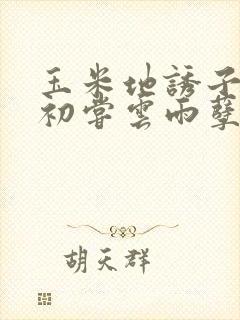 玉米地誘子
初嘗雲雨孽
胡天群